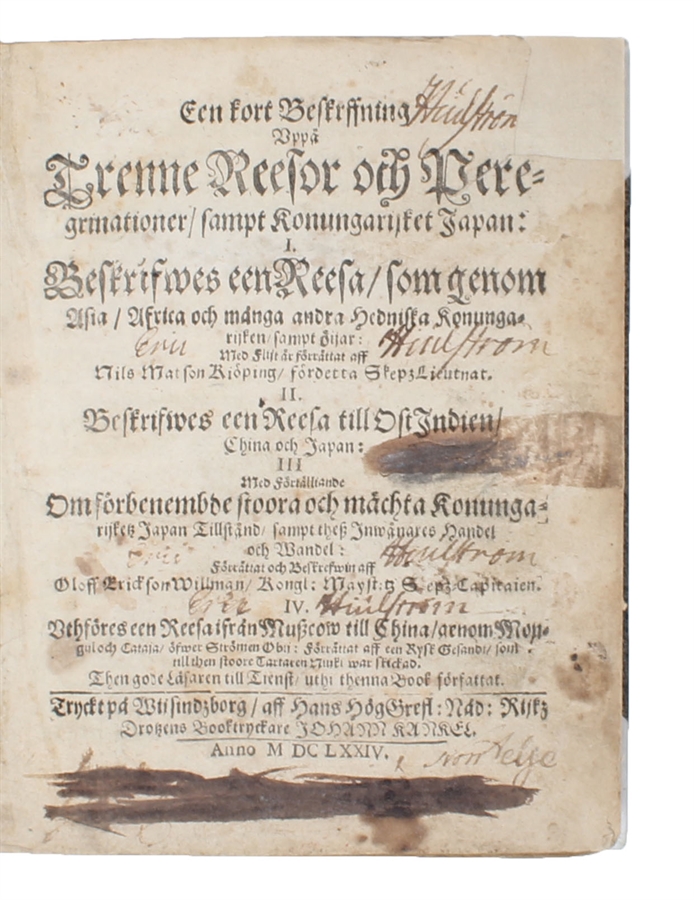 Een kort Beskrffning Hiulström
Vppå
Trenne Reesor och Pere-
grinationer/ sampt Konungarijket Japan:
I.
Beskrifwes een Reesa/ som genom
Asia / Africa och många andra Hedniska Konunga-
rijken/ sampt Öijar: Eric Hiulström
Med Flijt är förrättat aff
Nils Matson Kiöping/ fördetta SkepzLieutnat.
II.
Beskrifwes een Reesa till OstIndien/
China och Japan:
III
Med Förtälliande
Om förbenembde stoora och mächta Konunga-
rijketz Japan Tillstånd/ sampt theß Inwånares Handel
och Wandel: Eric Hiulström
Förrättat och Beskrefwin aff
Oloff Erickson Willman/ Kongl: Mayst:tz Skepz-Capitaien.
Eric IV. Hiulström
Vthföres een Reesa ifrån Mußcow till China/ genom Mon-
gul och Cataja/ öfwer Strömen Obij: Förrättat aff een Rysk Gesandt/ som
till then stoore Tartaren Niuki war skickad.
Them gode Läsaren till Tienst/ uthi thenna Book författat.
Tryckt på Wijsindzborg/ aff Hans HögGrefl: Nåd: Rijkz
Drotzens Booktryckare JOHANN KANKEL.
Anno M DC LXXIV.